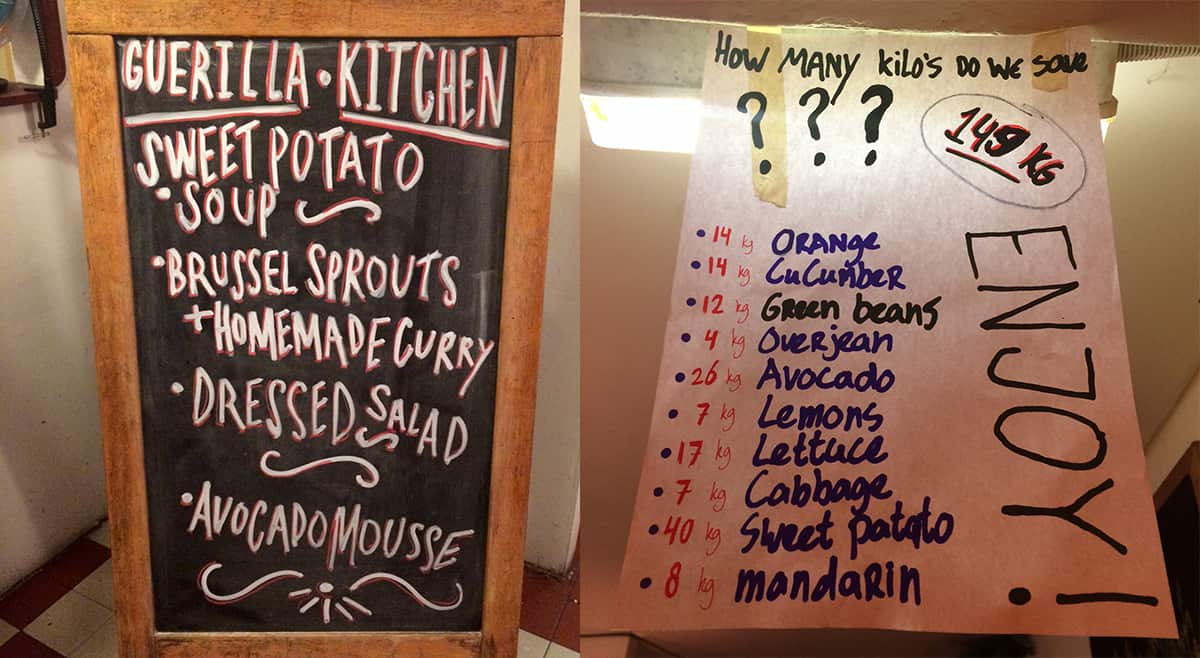 GUERILLA • KITCHEN
SWEET POTATO
• SOUP
• BRUSSEL SPROUTS
+ HOMEMADE CURRY
• DRESSED SALAD
• AVOCADO MOUSSE
HOW MANY KILO'S DO WE SAVE
? ? ?
149 KG
• 14 kg ORANGE
• 14 kg CUCUMBER
• 12 kg Green beans
• 4 kg Overjean
• 26 kg Avocado
• 7 kg Lemons
• 17 kg Lettuce
• 7 kg Cabbage
• 40 kg Sweet patato
• 8 kg mandarin
ENJOY!